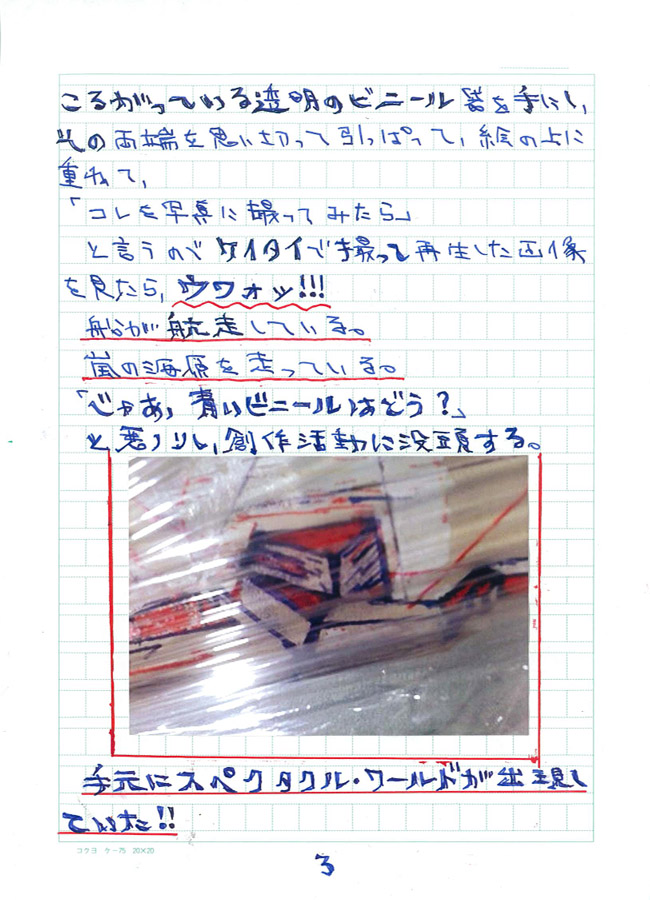 ころがっている透明のビニール袋を手にし、
その両端を思い切って引っぱって、絵の上に
重ねて、
「コレを写真に撮ってみたら」
と言うのでケイタイで撮って再生した画像
を見たら、ウワォッ!!!
船が航走している。
嵐の海原を走っている。
「じゃあ、青いビニールはどう?」
と悪ノリし、創作活動に没頭する。
手元にスペクタクル・ワールドが出現し
ていた!!
コクヨ ケー75 20×20
3